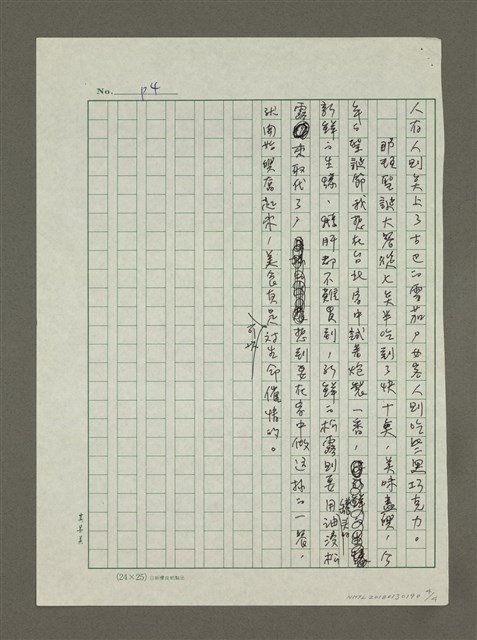 No. p4
人有人則美上了古巴の雪茄，女客人則吃些黑巧克力。
那頓聖誕大餐從七點半吃到了快十點，美味盡興，今
年の聖誕節我想在台北家中試著炮製一番，
新鮮の生蠔、鵝肝都不難買到，新鮮の松露則要用油浸松
罐頭の
露來取代了，想到要在家中做這樣の一餐，
就開始興奮起來，美食真是過生命催情的。
可以
(24×25)
NMTL20180130190 4/4